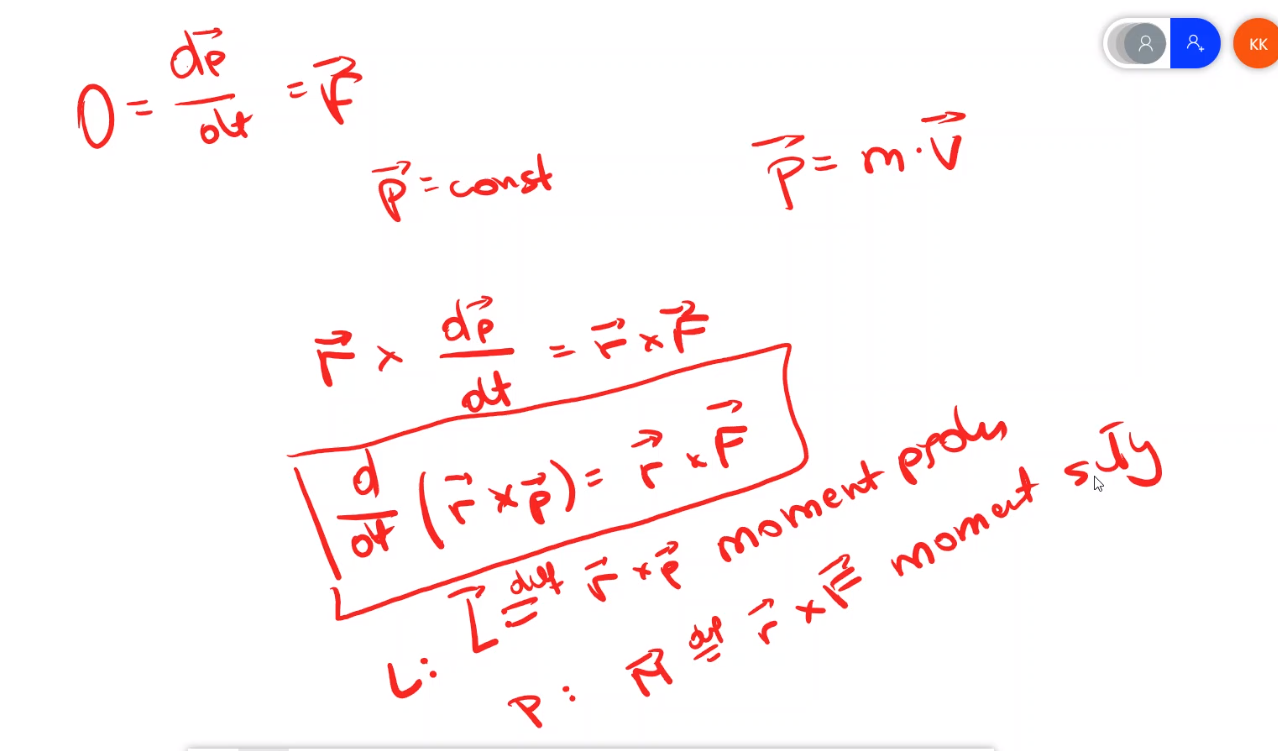 KK
0 = dp⃗/dt = F⃗
p⃗ = const
p⃗ = m · v⃗
r⃗ × dp⃗/dt = r⃗ × F⃗
d/dt (r⃗ × p⃗) = r⃗ × F⃗
L: L⃗ = r⃗ × p⃗ moment
P: M⃗ = r⃗ × F⃗ moment siły